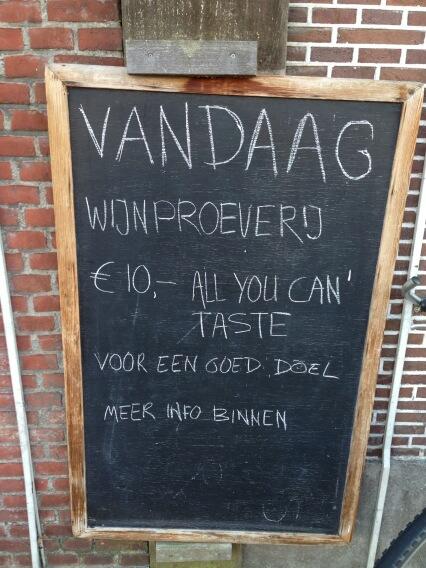 VANDAAG
WIJNPROEVERIJ
€ 10,- ALL YOU CAN'
TASTE
VOOR EEN GOED DOEL
MEER INFO BINNEN